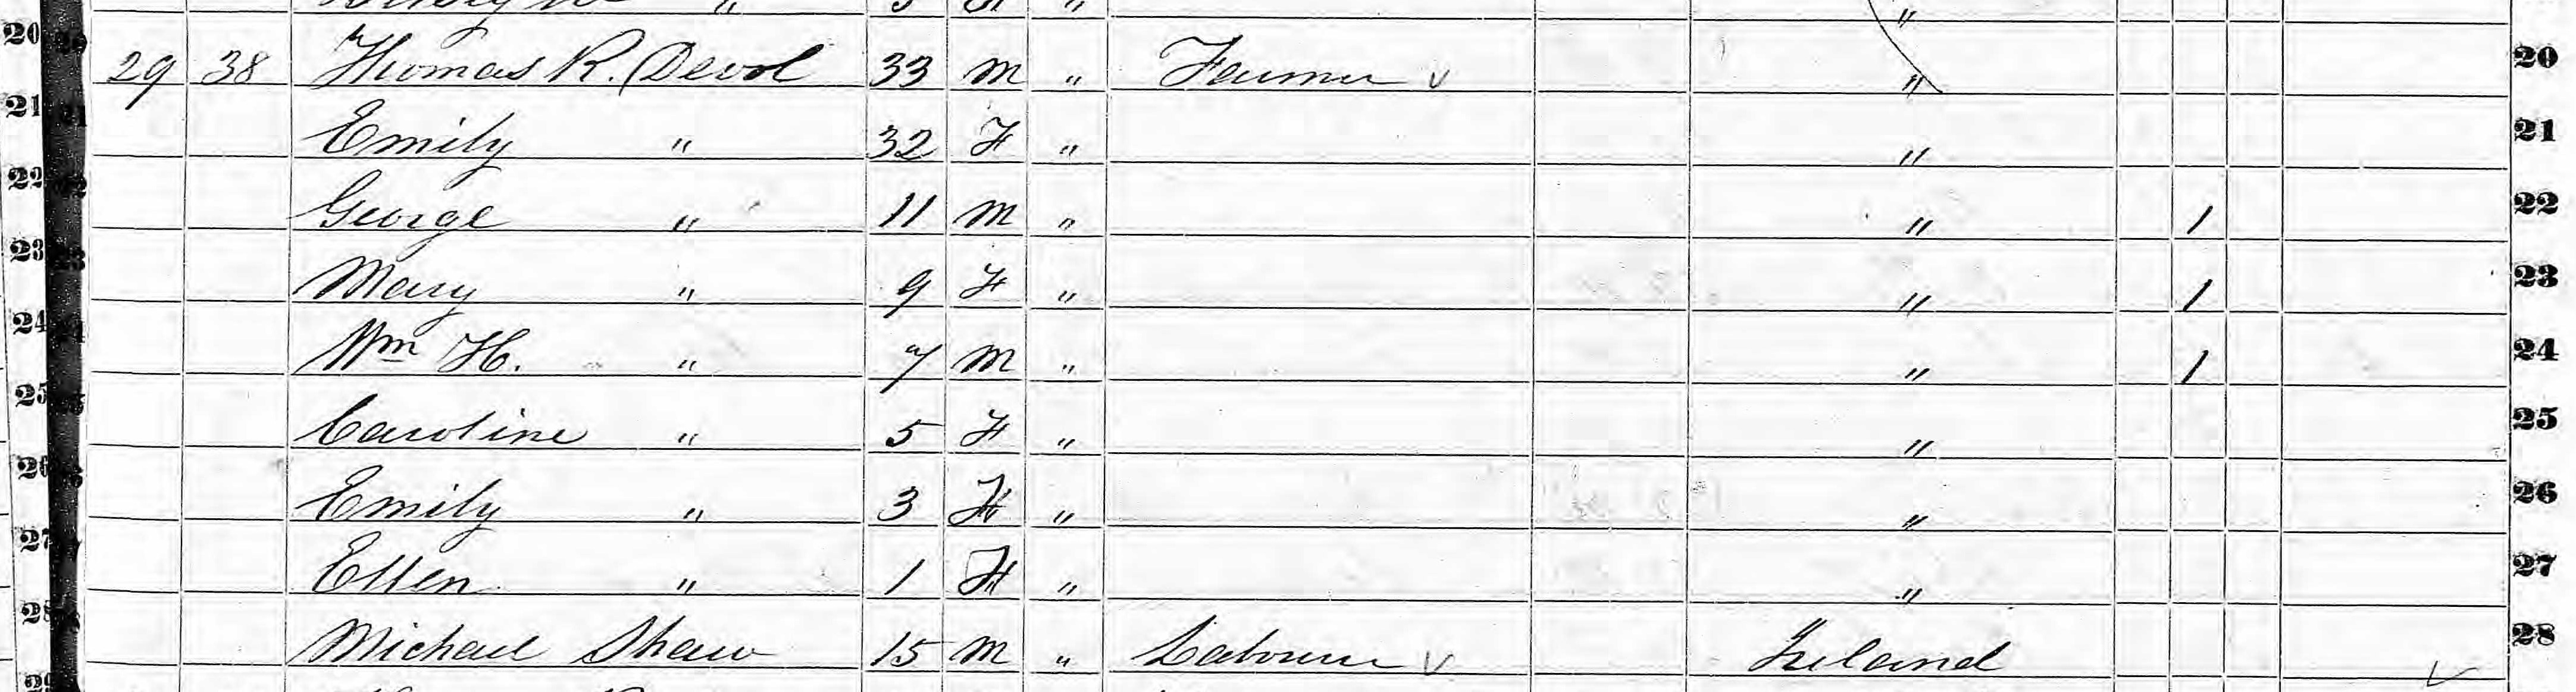 20 29 38 Thomas R. Devol 33 m " Farmer v " 20
21 Emily " 32 F " " 21
22 George " 11 m " " 1 22
23 Mary " 9 F " " 1 23
24 Wm H. " 7 m " " 1 24
25 Caroline " 5 F " " 25
26 Emily " 3 F " " 26
27 Ellen " 1 F " " 27
28 Michael Shaw 15 m " Labourer v Ireland 28